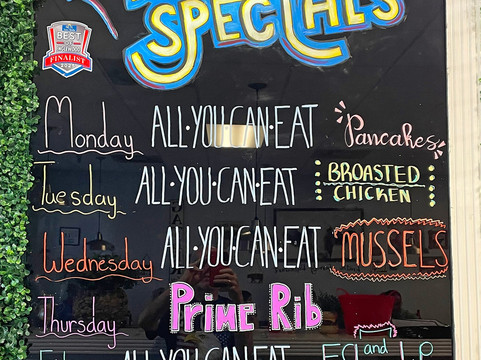 SPECIALS
BEST
FINALIST
Monday ALL·YOU·CAN·EAT Pancakes
Tuesday ALL·YOU·CAN·EAT BROASTED CHICKEN
Wednesday ALL·YOU·CAN·EAT MUSSELS
Thursday Prime Rib
ALL·YOU·CAN·EAT and